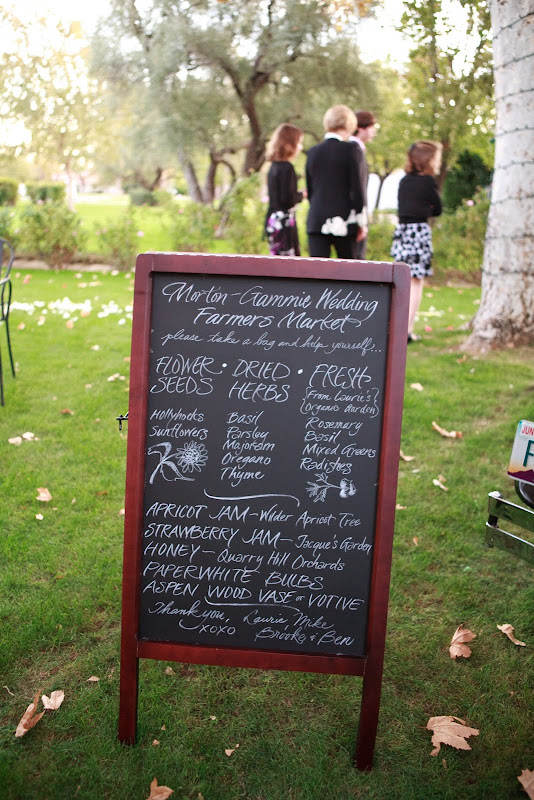 Morton-Gammie Wedding
Farmers Market
please take a bag and help yourself...
FLOWER SEEDS
Hollyhocks
Sunflowers
• DRIED HERBS •
Basil
Parsley
Majoram
Oregano
Thyme
FRESH
{From Laurie's}
{Organic Garden}
Rosemary
Basil
Mixed Greens
Radishes
APRICOT JAM - Wilder Apricot Tree
STRAWBERRY JAM - Jacque's Garden
HONEY - Quarry Hill Orchards
PAPERWHITE BULBS
ASPEN WOOD VASE or VOTIVE
Thank you, Laurie, Mike
XOXO Brooke & Ben
JUN